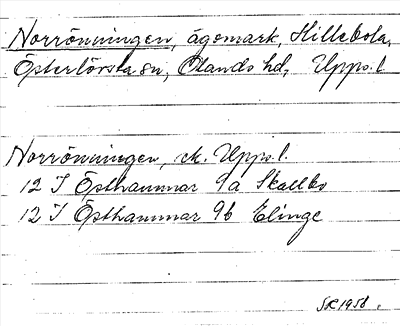 Norrönningen, ägomark, Hillebola,
Österlövsta sn, Olands hd, Upps. l
Norrönningen, ek. Upps. l.
12 I Östhammar 9a Skallbo
12 I Östhammar 9b Elinge
SK 1958.